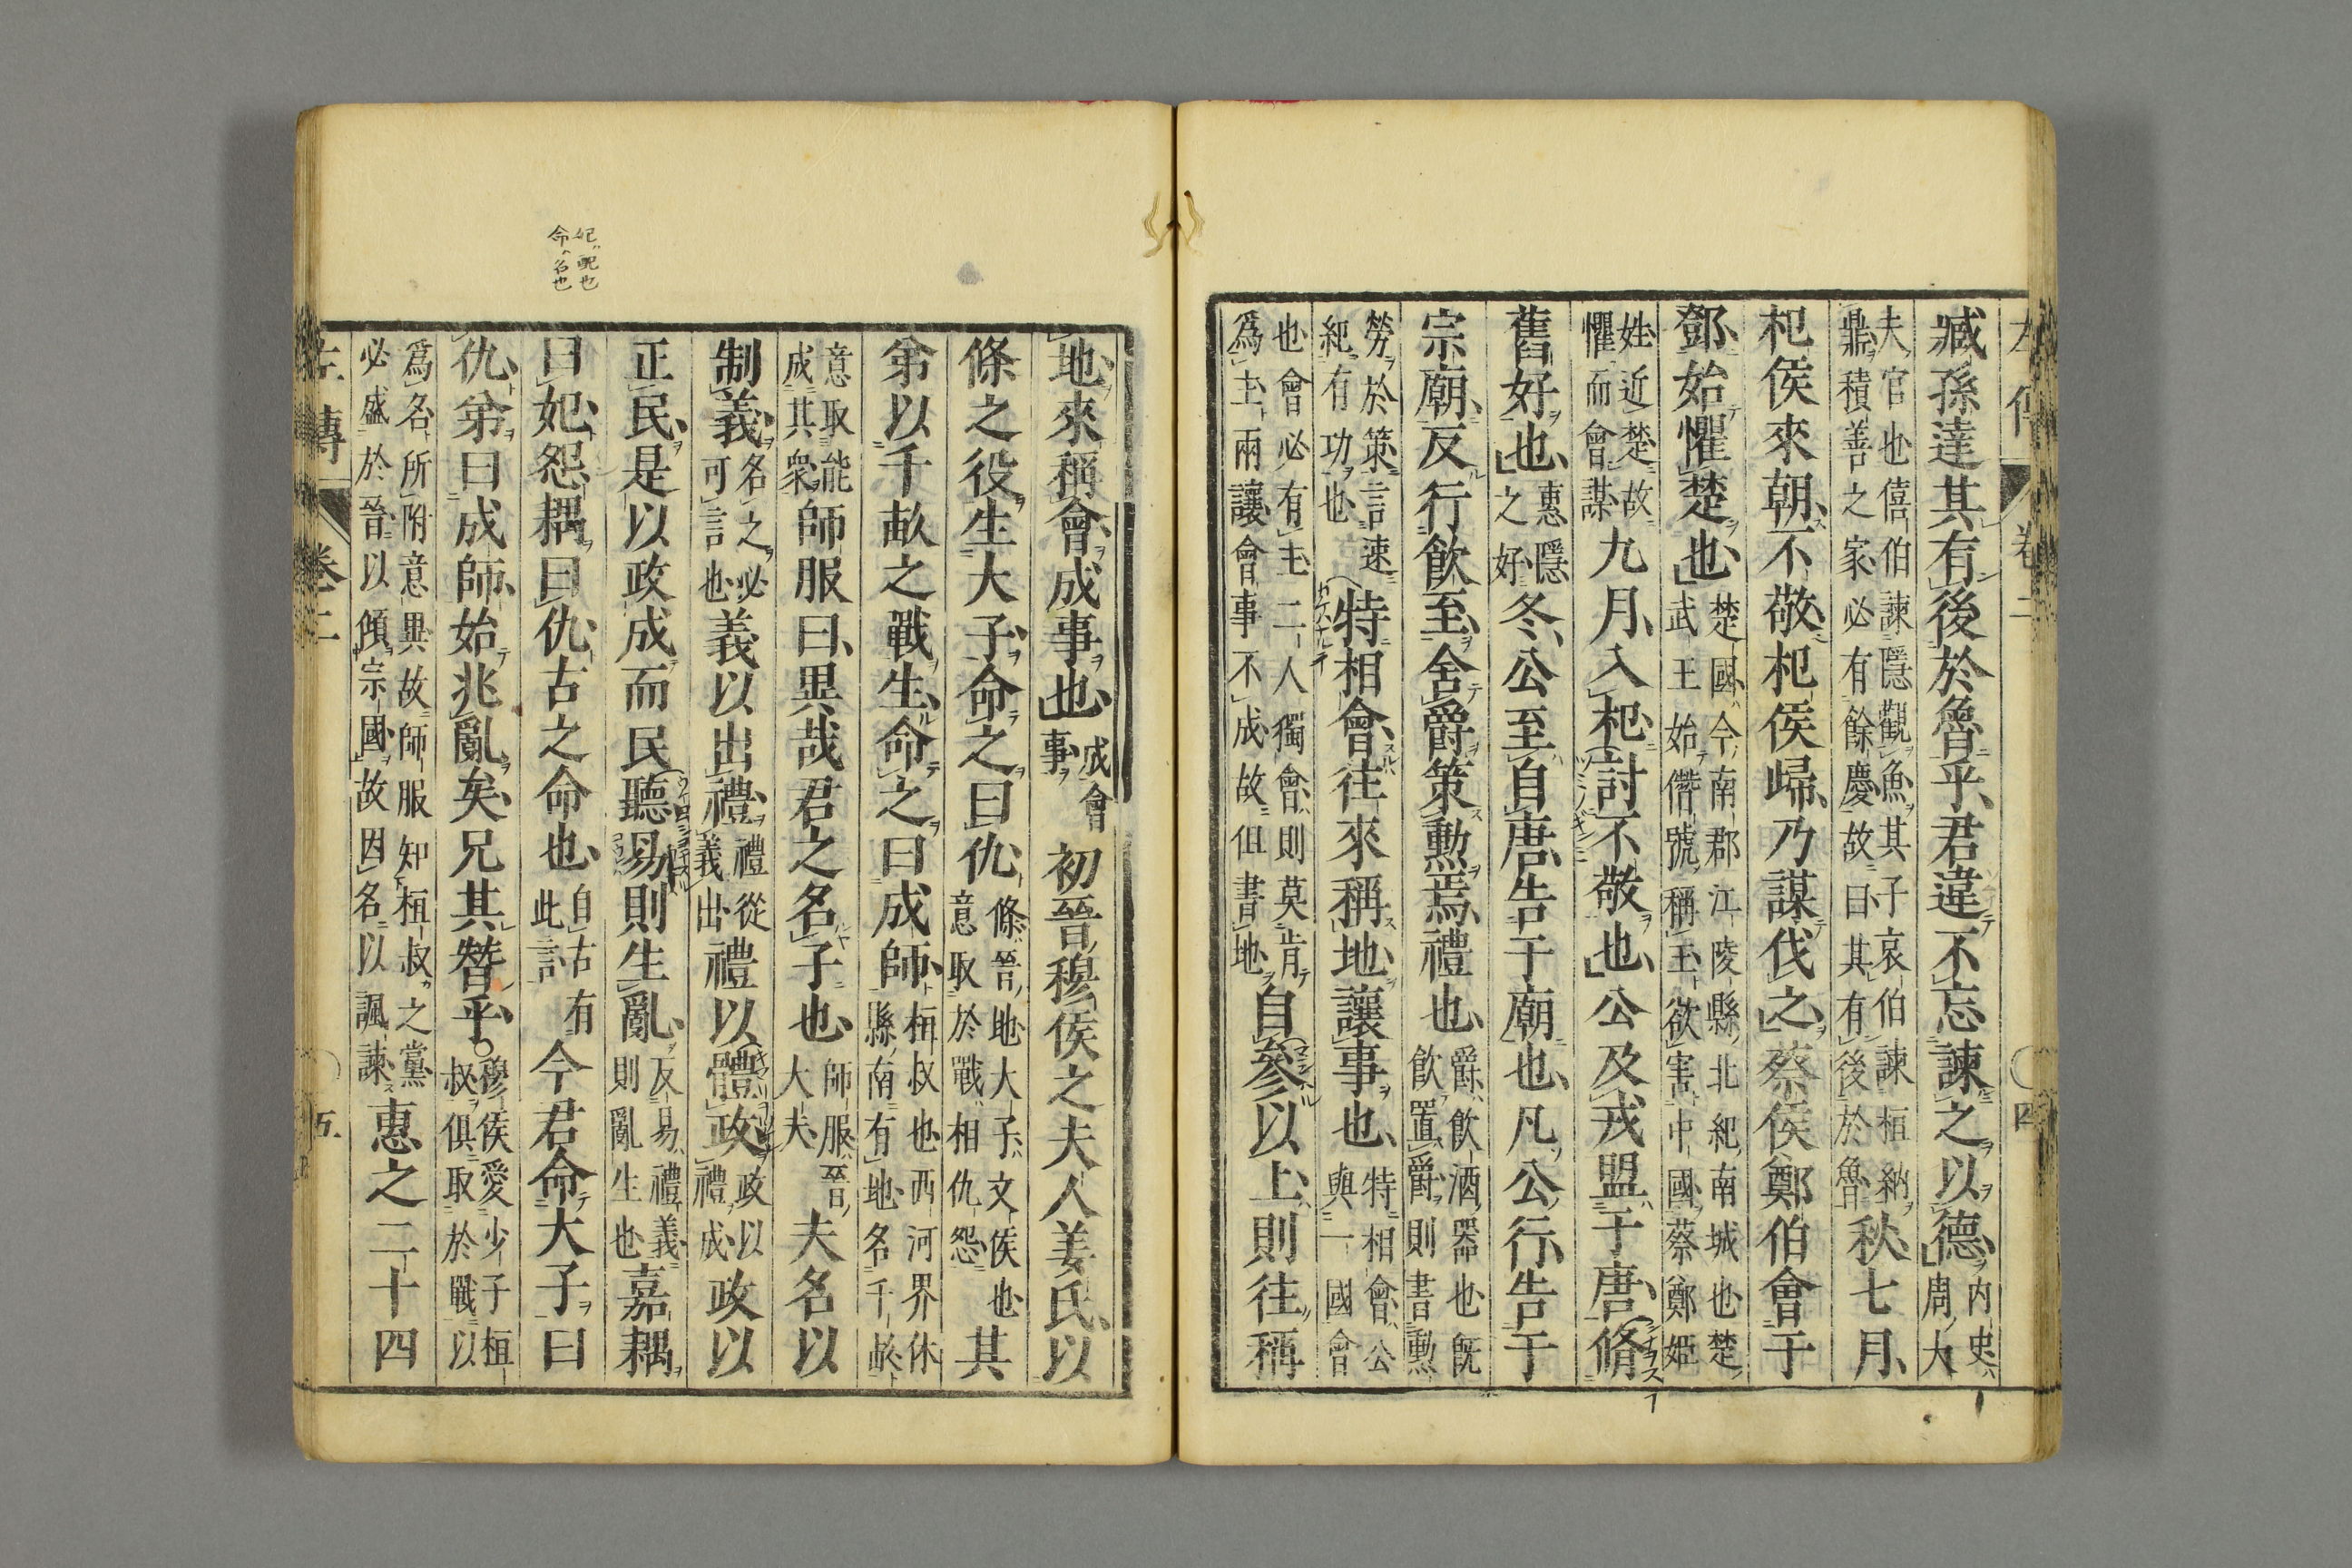 臧孫達其有後於魯乎君違不忘諫之以德内史周大
夫官也僖伯諫隱觀魚其子哀伯諫桓納
鼎積善之家必有餘慶故曰其有後於魯秋七月
杞侯來朝不敬杞侯歸乃謀伐之蔡侯鄭伯會于
鄧始懼楚也楚國今南郡江陵縣北紀南城也楚
武王始僭號稱王欲害中國蔡鄭姬
姓近楚故
懼而會謀九月入杞討不敬也公及戎盟于唐脩
舊好也惠隱
之好冬公至自唐告于廟也凡公行告于
宗廟反行飲至舍爵策勲焉禮也爵飲酒器也既
飲置爵則書勲
勞於策言速
紀有功也特相會往來稱地讓事也特相會公
與一國會
也會必有主二人獨會則莫肯
爲主兩讓會事不成故但書地自參以上則往稱
左傳 卷二 四
地來稱會成事也成會
事初晉穆侯之夫人姜氏以
條之役生大子命之曰仇條晉地大子文侯也
意取於戰相仇怨其
弟以千畝之戰生命之曰成師桓叔也西河界休
縣南有地名千畝
意取能
成其衆師服曰異哉君之名子也師服晉
大夫夫名以
制義名之必
可言也義以出禮禮從
義出禮以體政政以
禮成政以
正民是以政成而民聽易則生亂反易禮義
則亂生也嘉耦
曰妃怨耦曰仇古之命也自古有
此言今君命大子曰
仇弟曰成師始兆亂矣兄其替乎穆侯愛少子桓
叔俱取於戰以
爲名所附意異故師服知桓叔之黨
必盛於晉以傾宗國故因名以諷諫惠之二十四
左傳 卷二 五
妃ハ配也
命ハ名也